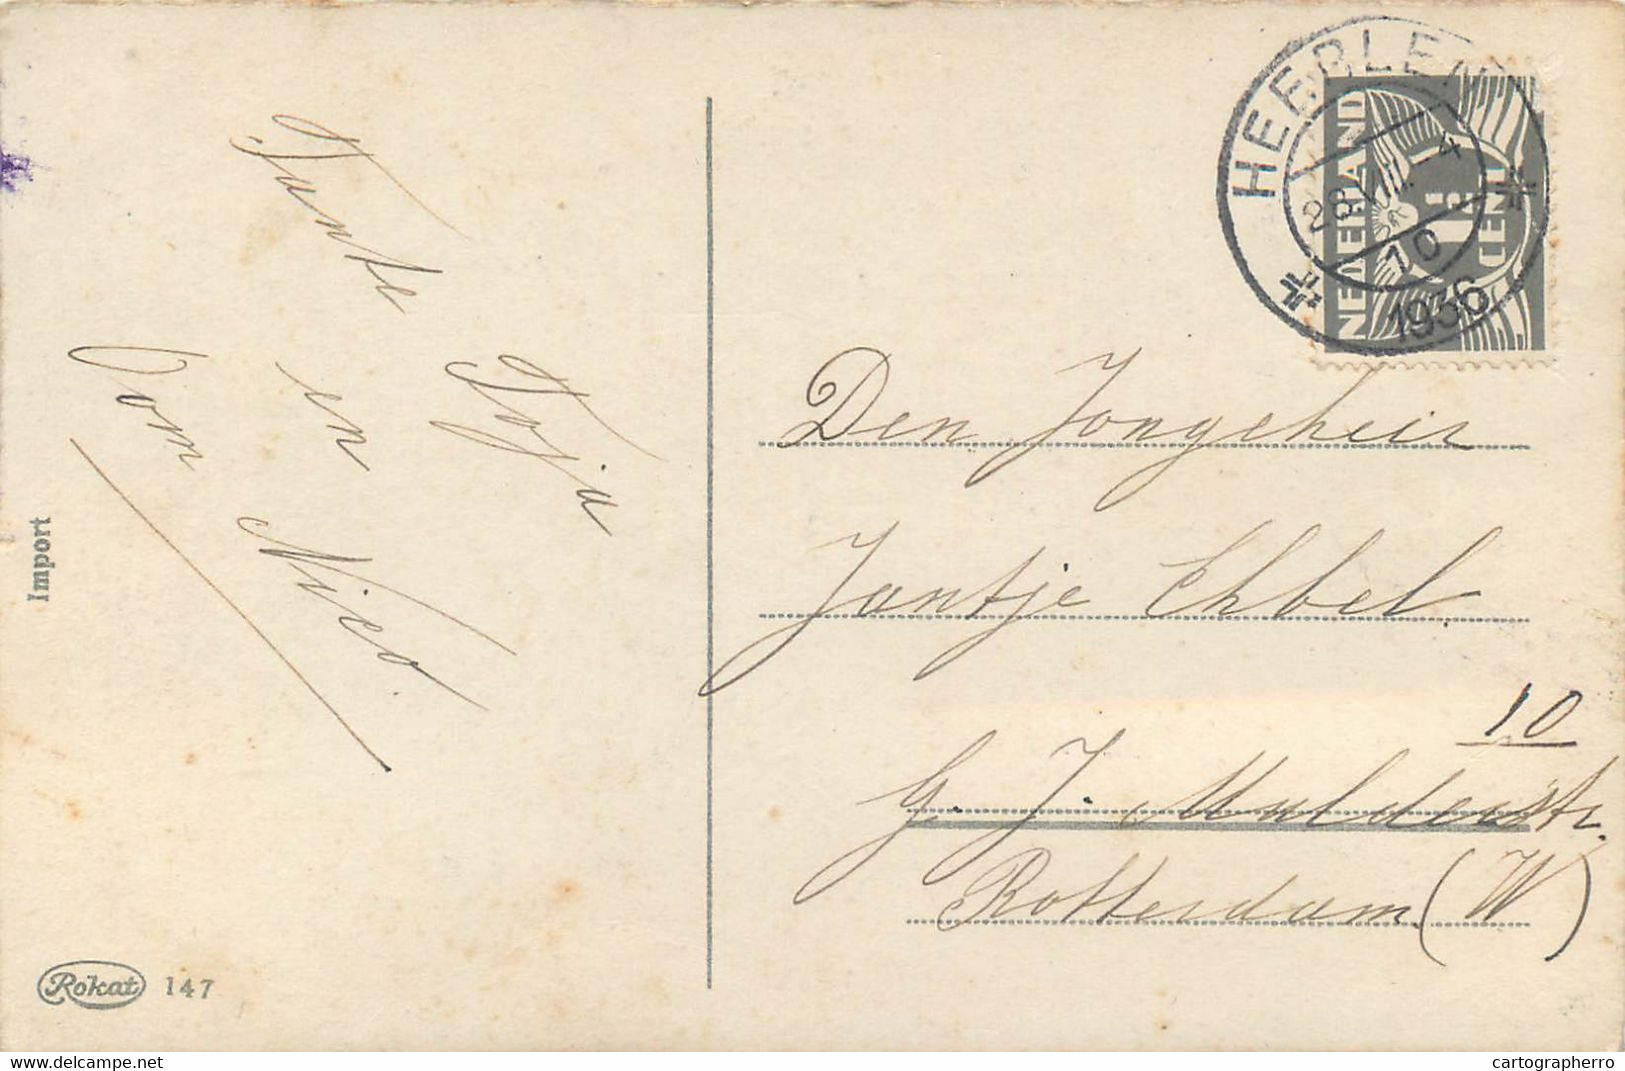 Tante
Tofju
en
Oom
Nico.
Import
Rokat 147
HEERLEN
28.VII 4
10
1936
NEDERLAND
1½
CENT
Den Jongeheir
Jantje Ehbel
10
G. J. Mulderstr.
Rotterdam (W)
www.delcampe.net
cartographerro